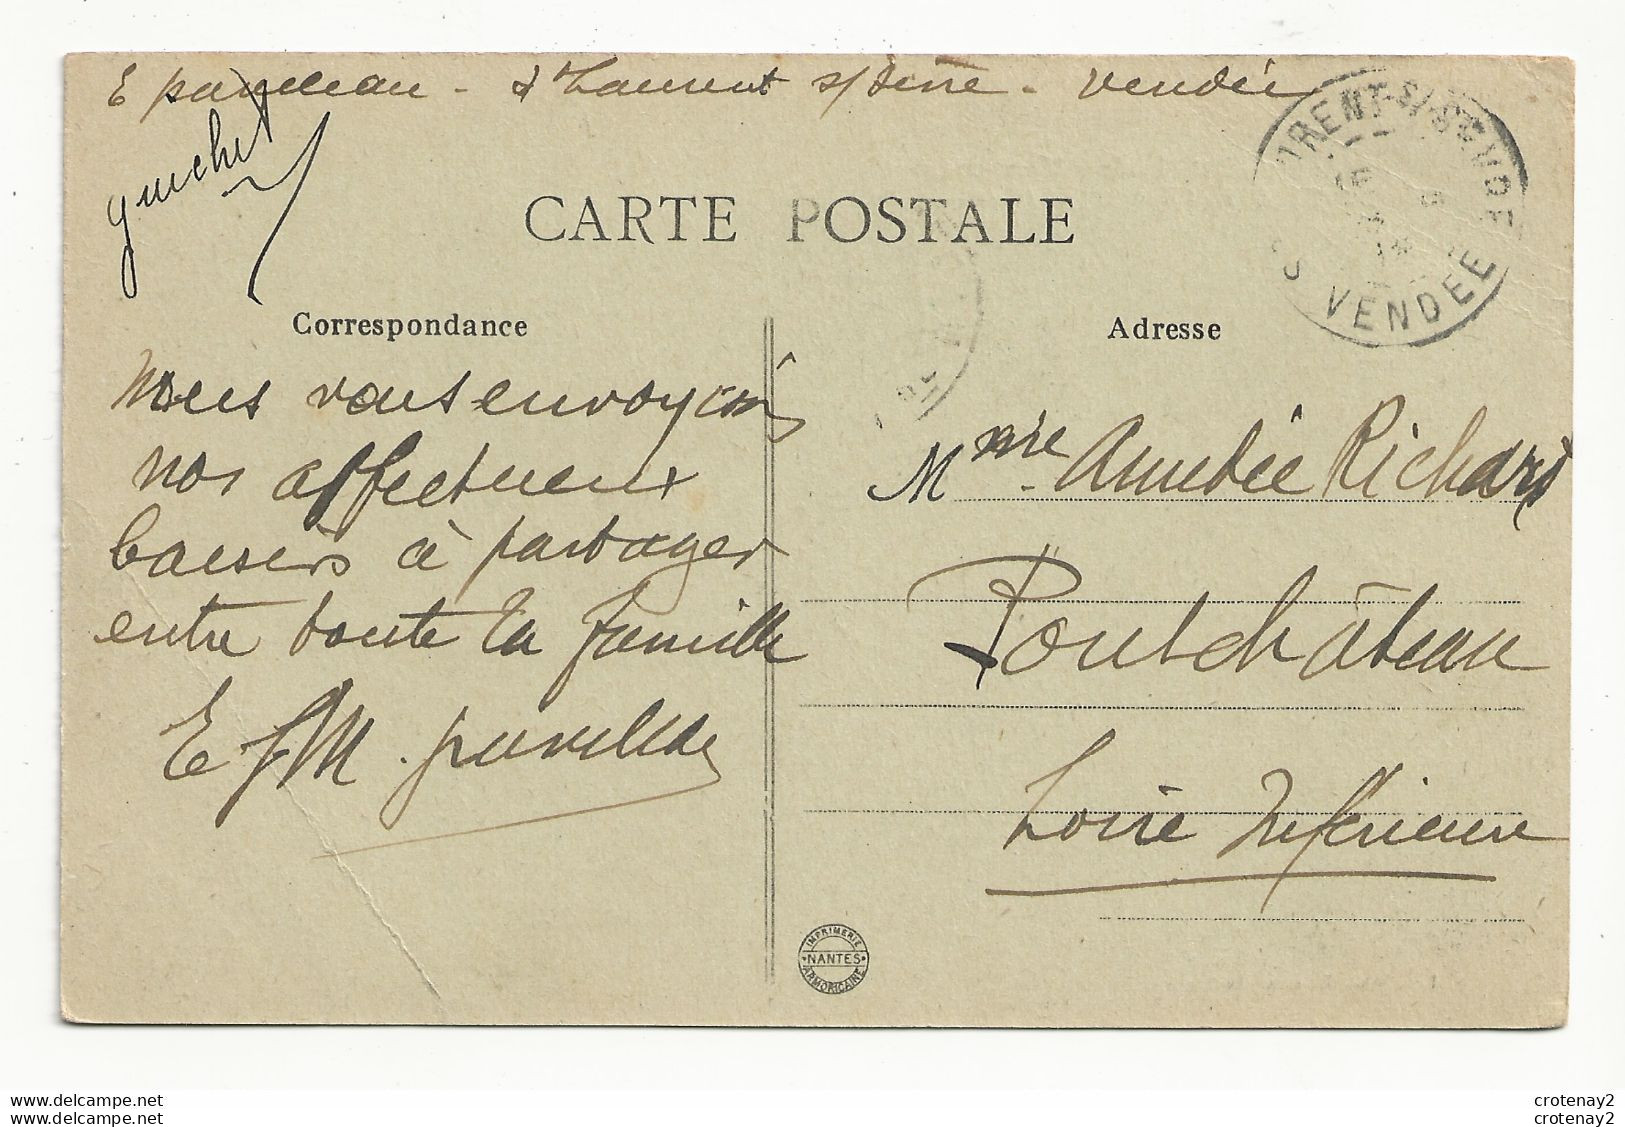 E - St Laurent s/ Sèvre - Vendée
guichet
RENT-S/-SEVRE
VENDEE
CARTE POSTALE
Correspondance
Adresse
Nous vous envoyons
nos affectueux
baisers à partager
entre toute la famille
E M.
Mme Amédée Richard
Pontchâteau
Loire Inférieure
IMPRIMERIE
NANTES
ARMORICAINE
crotenay2
crotenay2
www.delcampe.net
www.delcampe.net